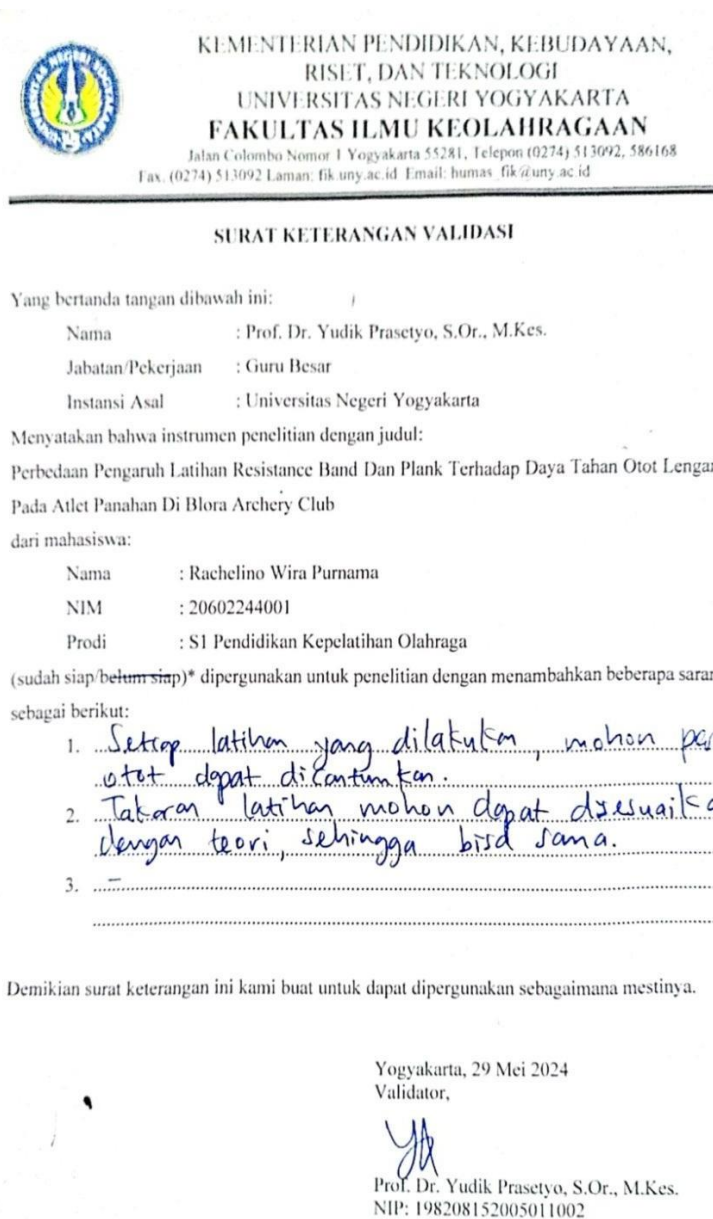 KEMENTERIAN PENDIDIKAN, KEBUDAYAAN,
RISET, DAN TEKNOLOGI
UNIVERSITAS NEGERI YOGYAKARTA
FAKULTAS ILMU KEOLAHRAGAAN
Jalan Colombo Nomor 1 Yogyakarta 55281, Telepon (0274) 513092, 586168
Fax. (0274) 513092 Laman: fik.uny.ac.id Email: humas_fik@uny.ac.id
SURAT KETERANGAN VALIDASI
Yang bertanda tangan dibawah ini:
Nama : Prof. Dr. Yudik Prasetyo, S.Or., M.Kes.
Jabatan/Pekerjaan : Guru Besar
Instansi Asal : Universitas Negeri Yogyakarta
Menyatakan bahwa instrumen penelitian dengan judul:
Perbedaan Pengaruh Latihan Resistance Band Dan Plank Terhadap Daya Tahan Otot Lengan
Pada Atlet Panahan Di Blora Archery Club
dari mahasiswa:
Nama : Rachelino Wira Purnama
NIM : 20602244001
Prodi : S1 Pendidikan Kepelatihan Olahraga
(sudah siap/belum siap)* dipergunakan untuk penelitian dengan menambahkan beberapa saran
sebagai berikut:
1. Setiap latihan yang dilakukan, mohon
otot dapat dicantumkan.
2. Takaran latihan mohon dapat disesuaika
dengan teori, sehingga bisa sama.
3. -
Demikian surat keterangan ini kami buat untuk dapat dipergunakan sebagaimana mestinya.
Yogyakarta, 29 Mei 2024
Validator,
Prof. Dr. Yudik Prasetyo, S.Or., M.Kes.
NIP: 198208152005011002